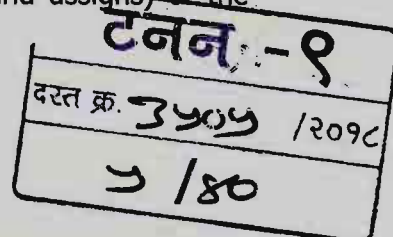 and assigns) of the
टनन -९
दस्त क्र. ३५०५ /२०१८
५ /४०